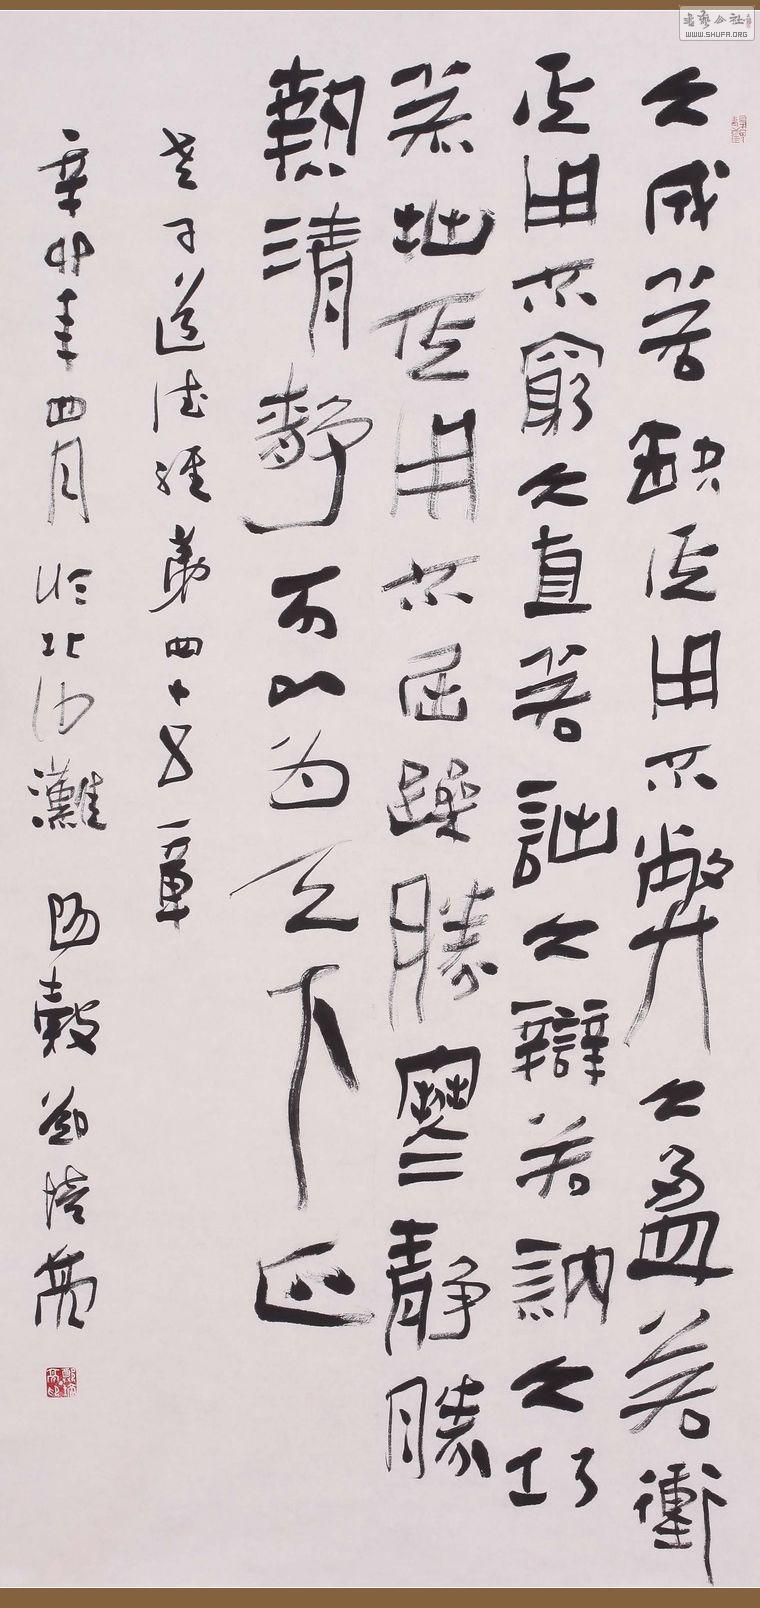 書藝公社
WWW.SHUFA.ORG
大成若缺其用不弊大盈若衝
其用不窮大直若詘大辯若訥大巧
若拙其用不屈躁勝寒靜勝
熱清靜可以为天下正
老子道德經第四十五章
辛卯年四月於北沙灘 陽穀鄭培亮